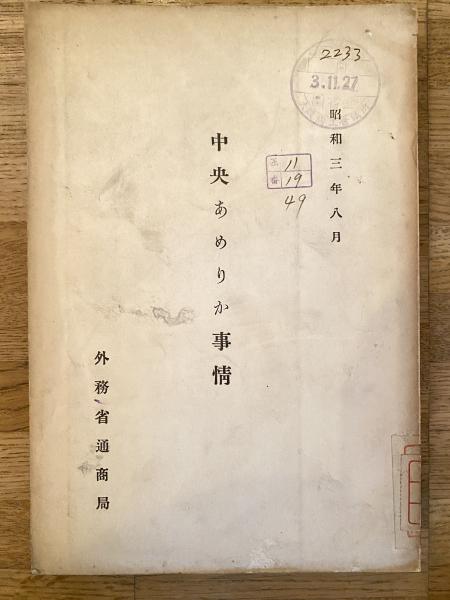 2233
3.11.27
昭和三年八月
11
番 19
49
中央あめりか事情
外務省通商局